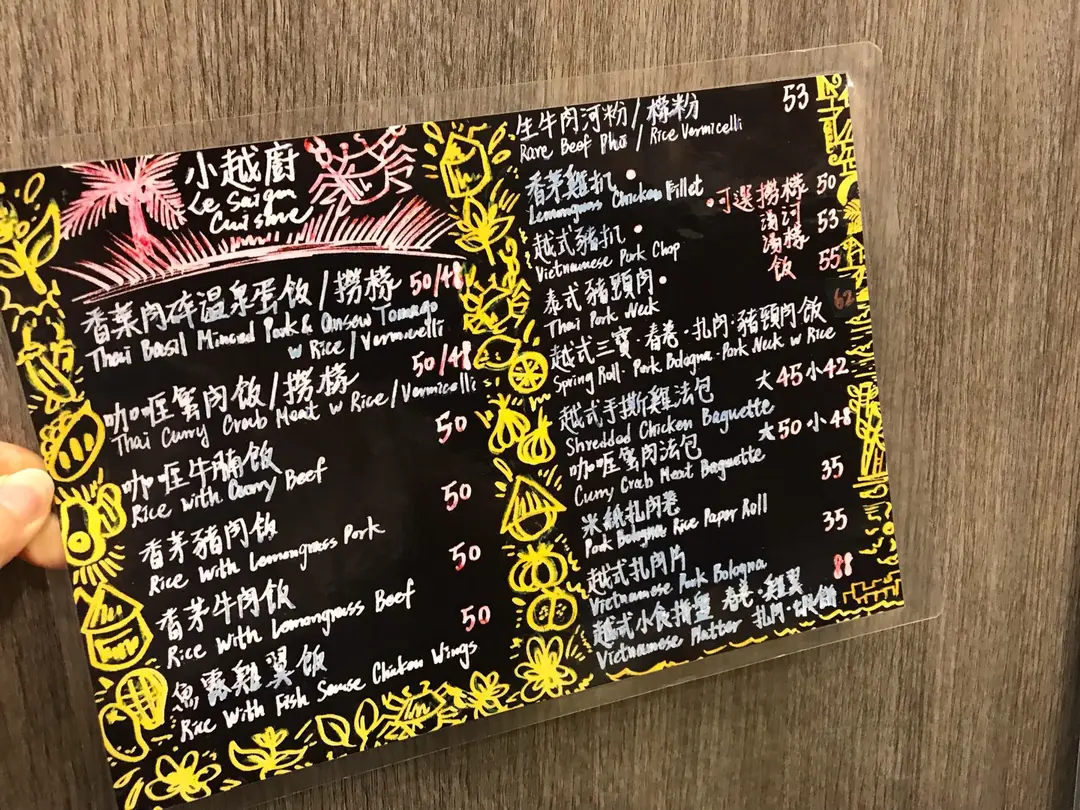 小越廚
Le Saigon
Cuisine
香葉肉碎溫泉蛋飯/撈檬 50/48
Thai Basil Minced Pork & Onsew Tomago
w Rice/Vermicelli
50/48
咖喱蟹肉飯/撈檬
Thai Curry Crab Meat w Rice/Vermicelli
50
咖喱牛腩飯
Rice with Curry Beef
50
香茅豬肉飯
Rice With Lemongrass Pork
50
香茅牛肉飯
Rice With Lemongrass Beef
50
魚露雞翼飯
Rice With Fish Sauce Chicken Wings
生牛肉河粉/檬粉 53
Rare Beef Phở / Rice Vermicelli
香茅雞扒
Lemongrass Chicken Fillet
可選撈檬 50
湯河
湯檬 53
飯 55
越式豬扒
Vietnamese Pork Chop
泰式豬頸肉
Thai Pork Neck
62
越式三寶·春卷·扎肉·豬頸肉飯
Spring Roll · Pork Bologna · Pork Neck w Rice
越式手撕雞法包 大45小42
Shredded Chicken Baguette
咖喱蟹肉法包 大50小48
Curry Crab Meat Baguette
米紙扎肉卷 35
Pork Bologna Rice Paper Roll
越式扎肉片 35
Vietnamese Pork Bologna
88
越式小食拼盤 春卷·雞翼
Vietnamese Platter 扎肉·蝦餅